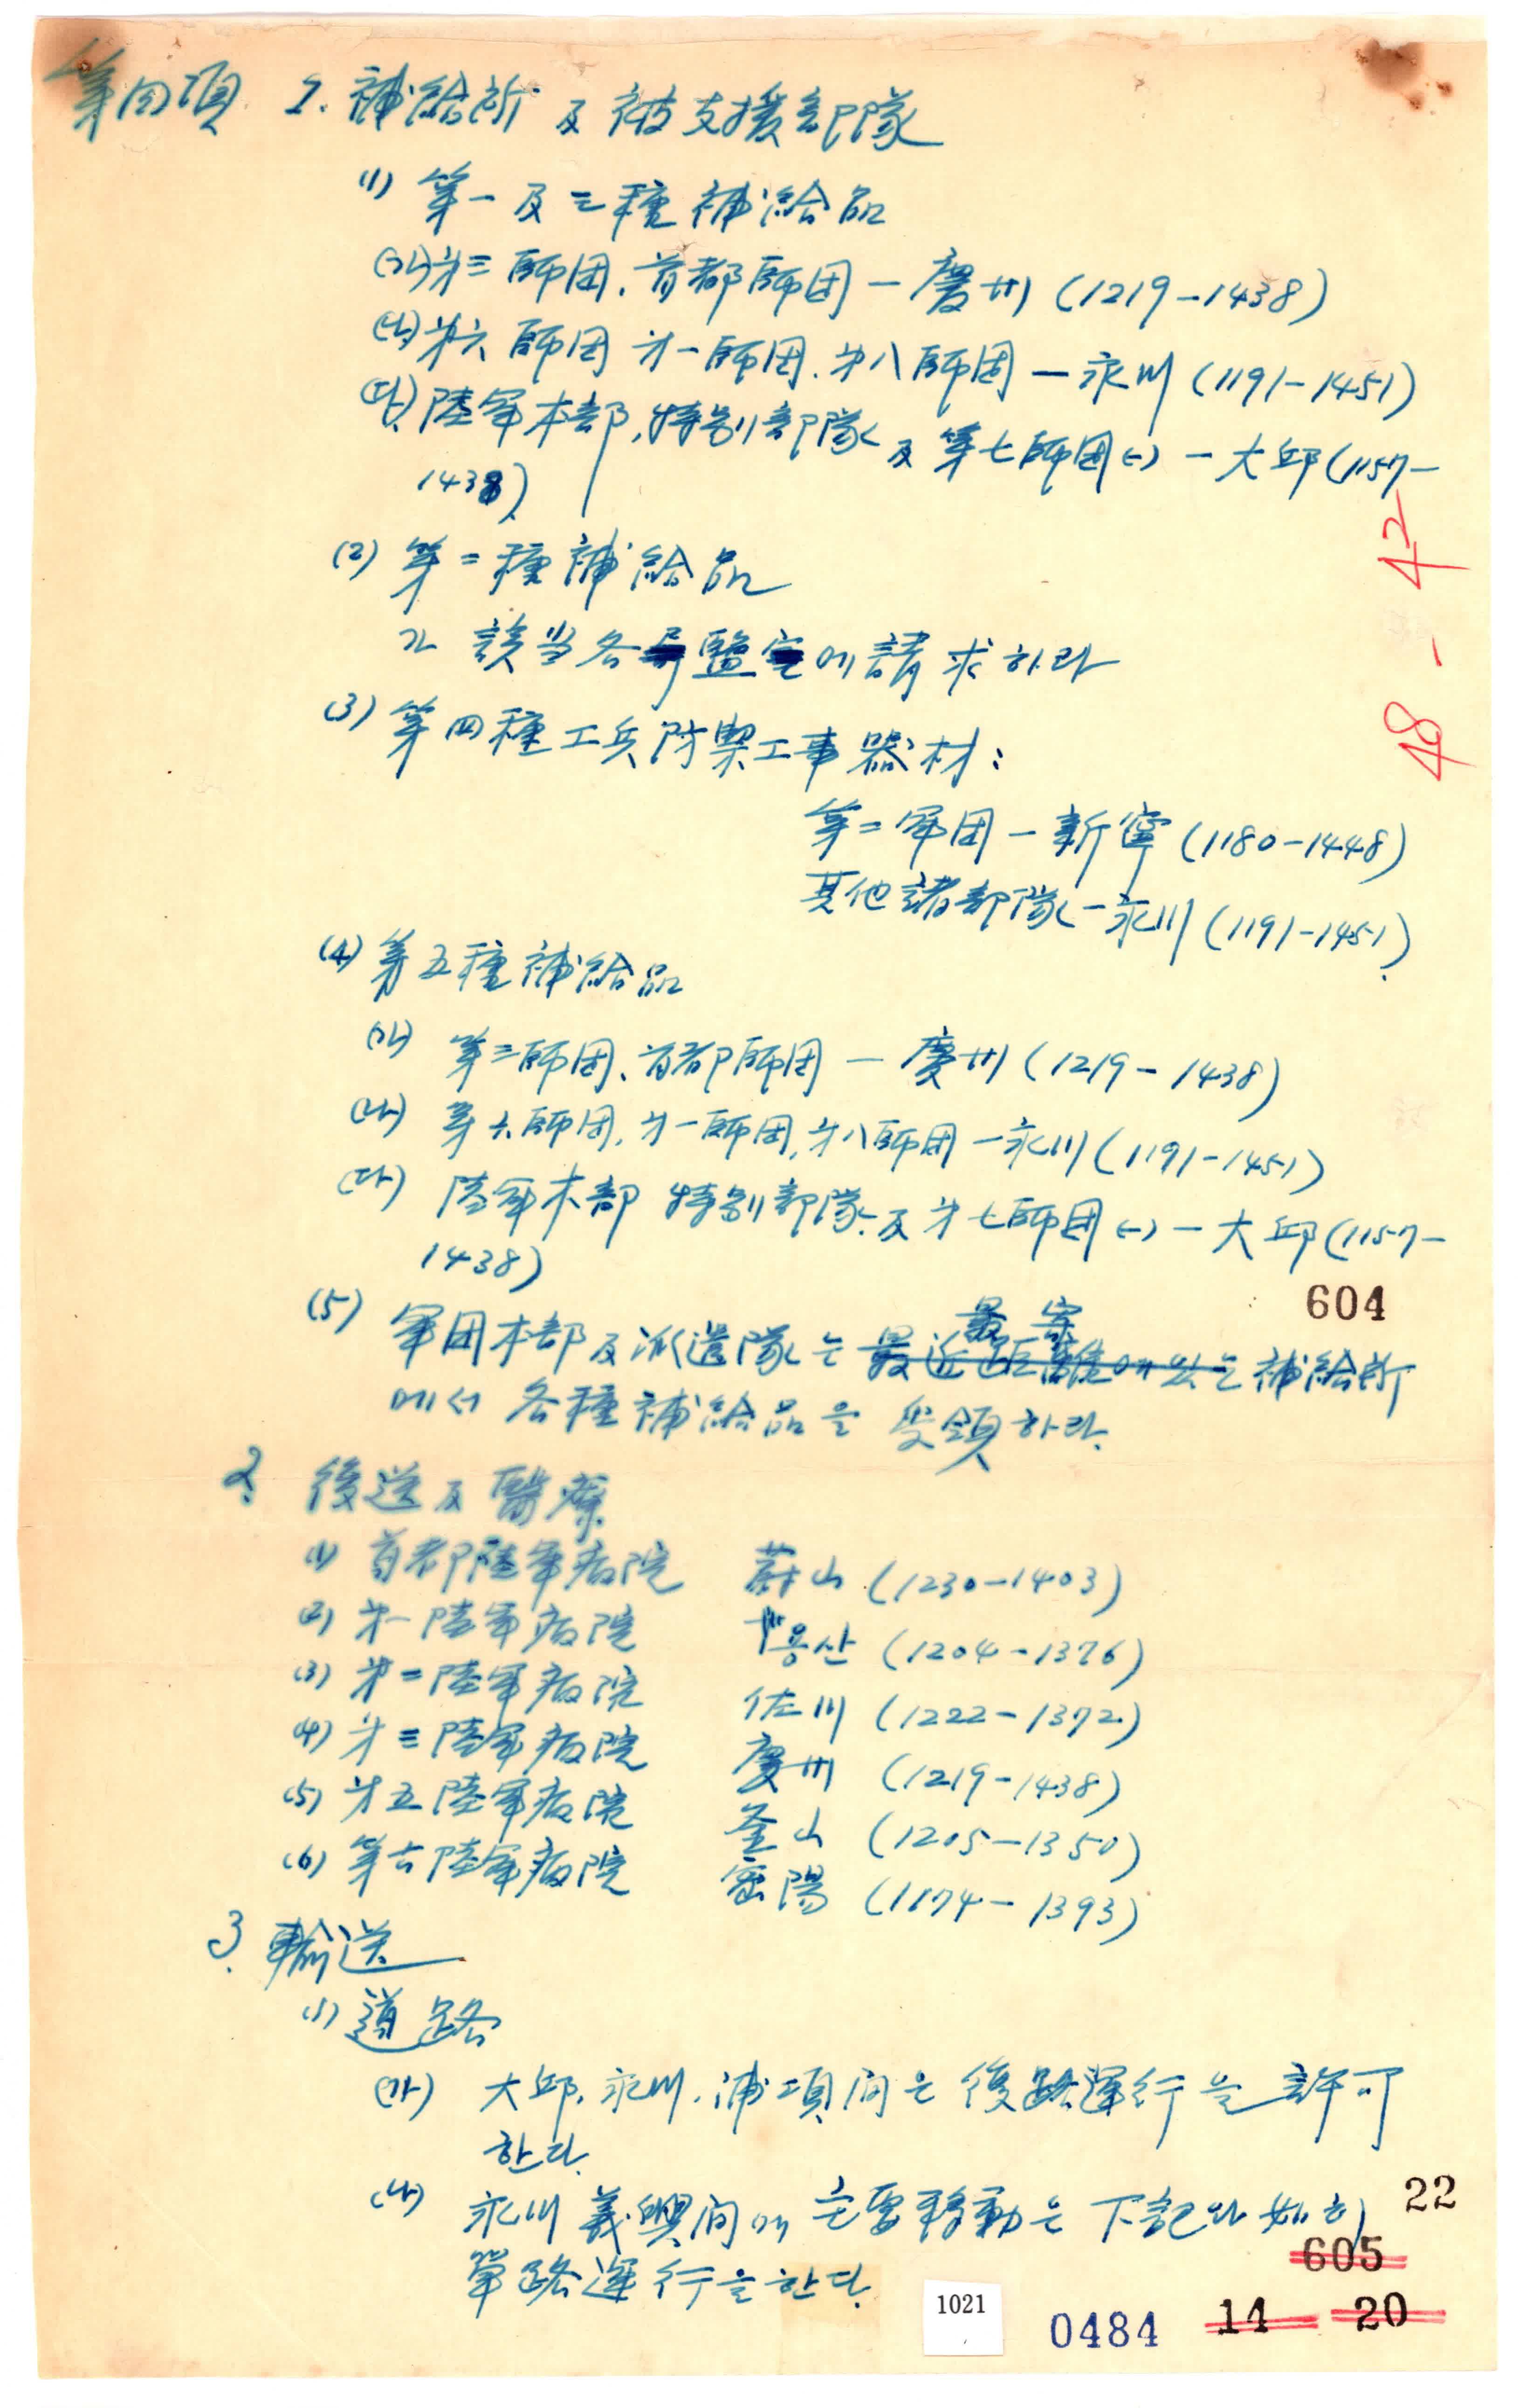 第四項 1. 補給所 及 被支援部隊
(1) 第一及三種 補給品
(가) 才三師团, 首都師团 — 慶州 (1219-1438)
(나) 才六師团 才一師团, 才八師团 — 永川 (1191-1451)
(다) 陸軍本部, 特別部隊 及 第七師团(-) — 大邱 (1157-
1438)
(2) 第二種補給品
가 該当各 監 에 請求하라
(3) 第四種工兵防禦工事器材:
第二軍团 — 新寧 (1180-1448)
其他諸部隊 — 永川 (1191-1451)
(4) 第五種補給品
(가) 第三師团, 首都師团 — 慶州 (1219-1438)
(나) 第六師团, 才一師团, 才八師团 — 永川 (1191-1451)
(다) 陸軍本部 特別部隊 及 才七師团(-) — 大邱 (1157-
1438)
604
最寄
(5) 軍团本部及派遣隊는 最近距離에 있는 補給所
에서 各種補給品을 受領하라.
2. 後送及醫療
(1) 首都陸軍病院 蔚山 (1230-1403)
(2) 才一陸軍病院 용산 (1204-1376)
(3) 才二陸軍病院 佐川 (1222-1372)
(4) 才三陸軍病院 慶州 (1219-1438)
(5) 才五陸軍病院 釜山 (1205-1350)
(6) 第六陸軍病院 密陽 (1174-1393)
3. 輸送
(1) 道路
(가) 大邱, 永川, 浦項間은 復路運行을 許可
한다.
(나) 永川 義興間에 主要移動은 下記와 如히
單路運行을 한다.
48 - 42
22
605
1021
0484
14 20